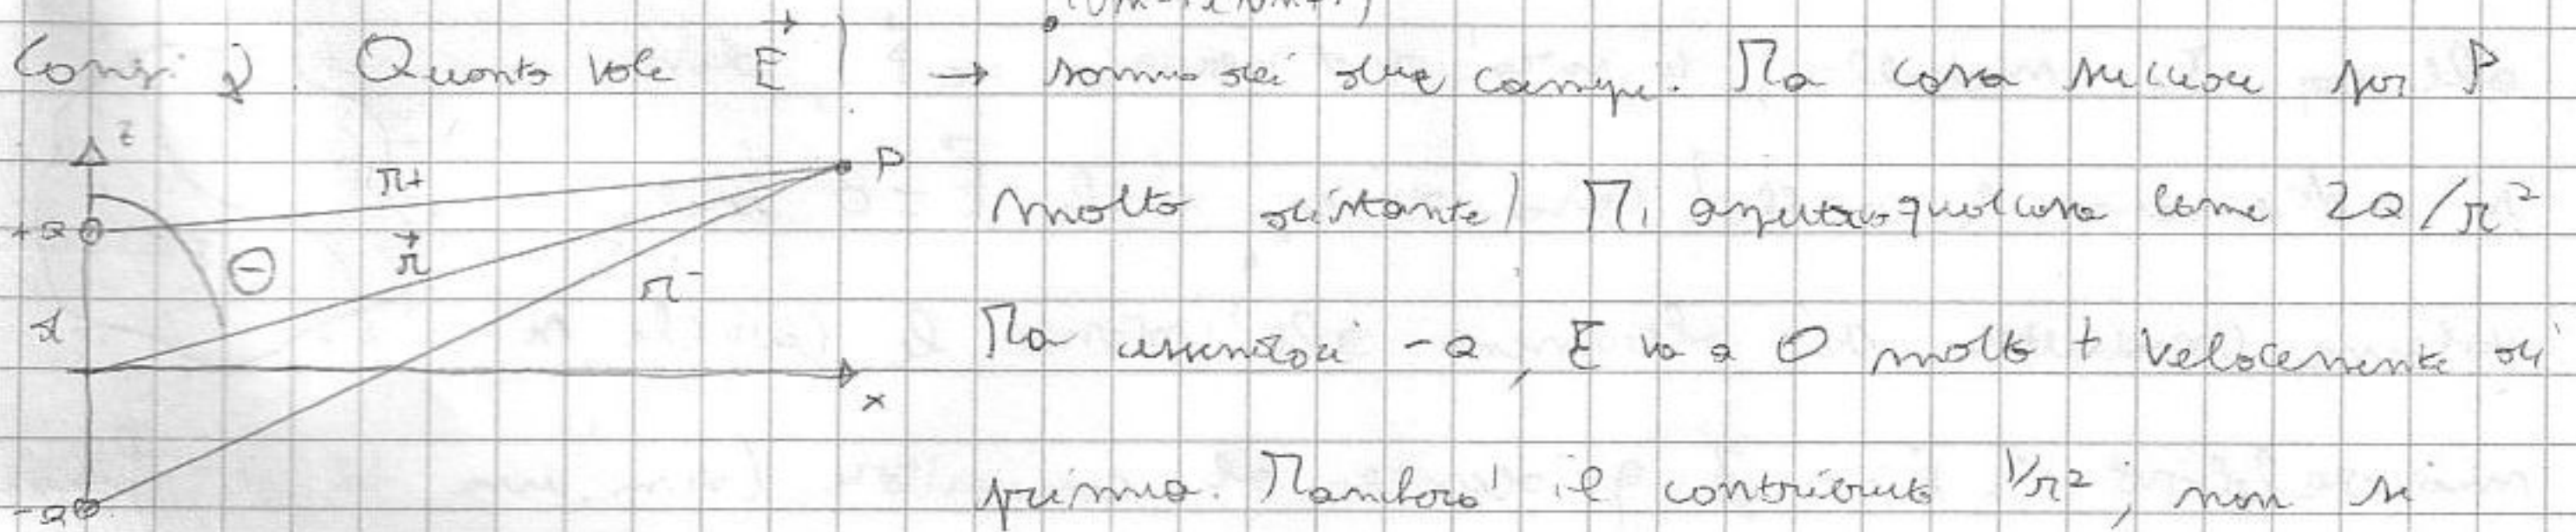 Quanto vale E⃗ | → somma dei due campi. Ma cosa succede per P
z
r+
P
+Q
θ
r⃗
r-
molto distante) Mi aspetto qualcosa come 2Q/r²
d
x
Ma essendoci -Q, E va a 0 molto + velocemente di
-Q
prima. Mancherà il contributo 1/r², non si